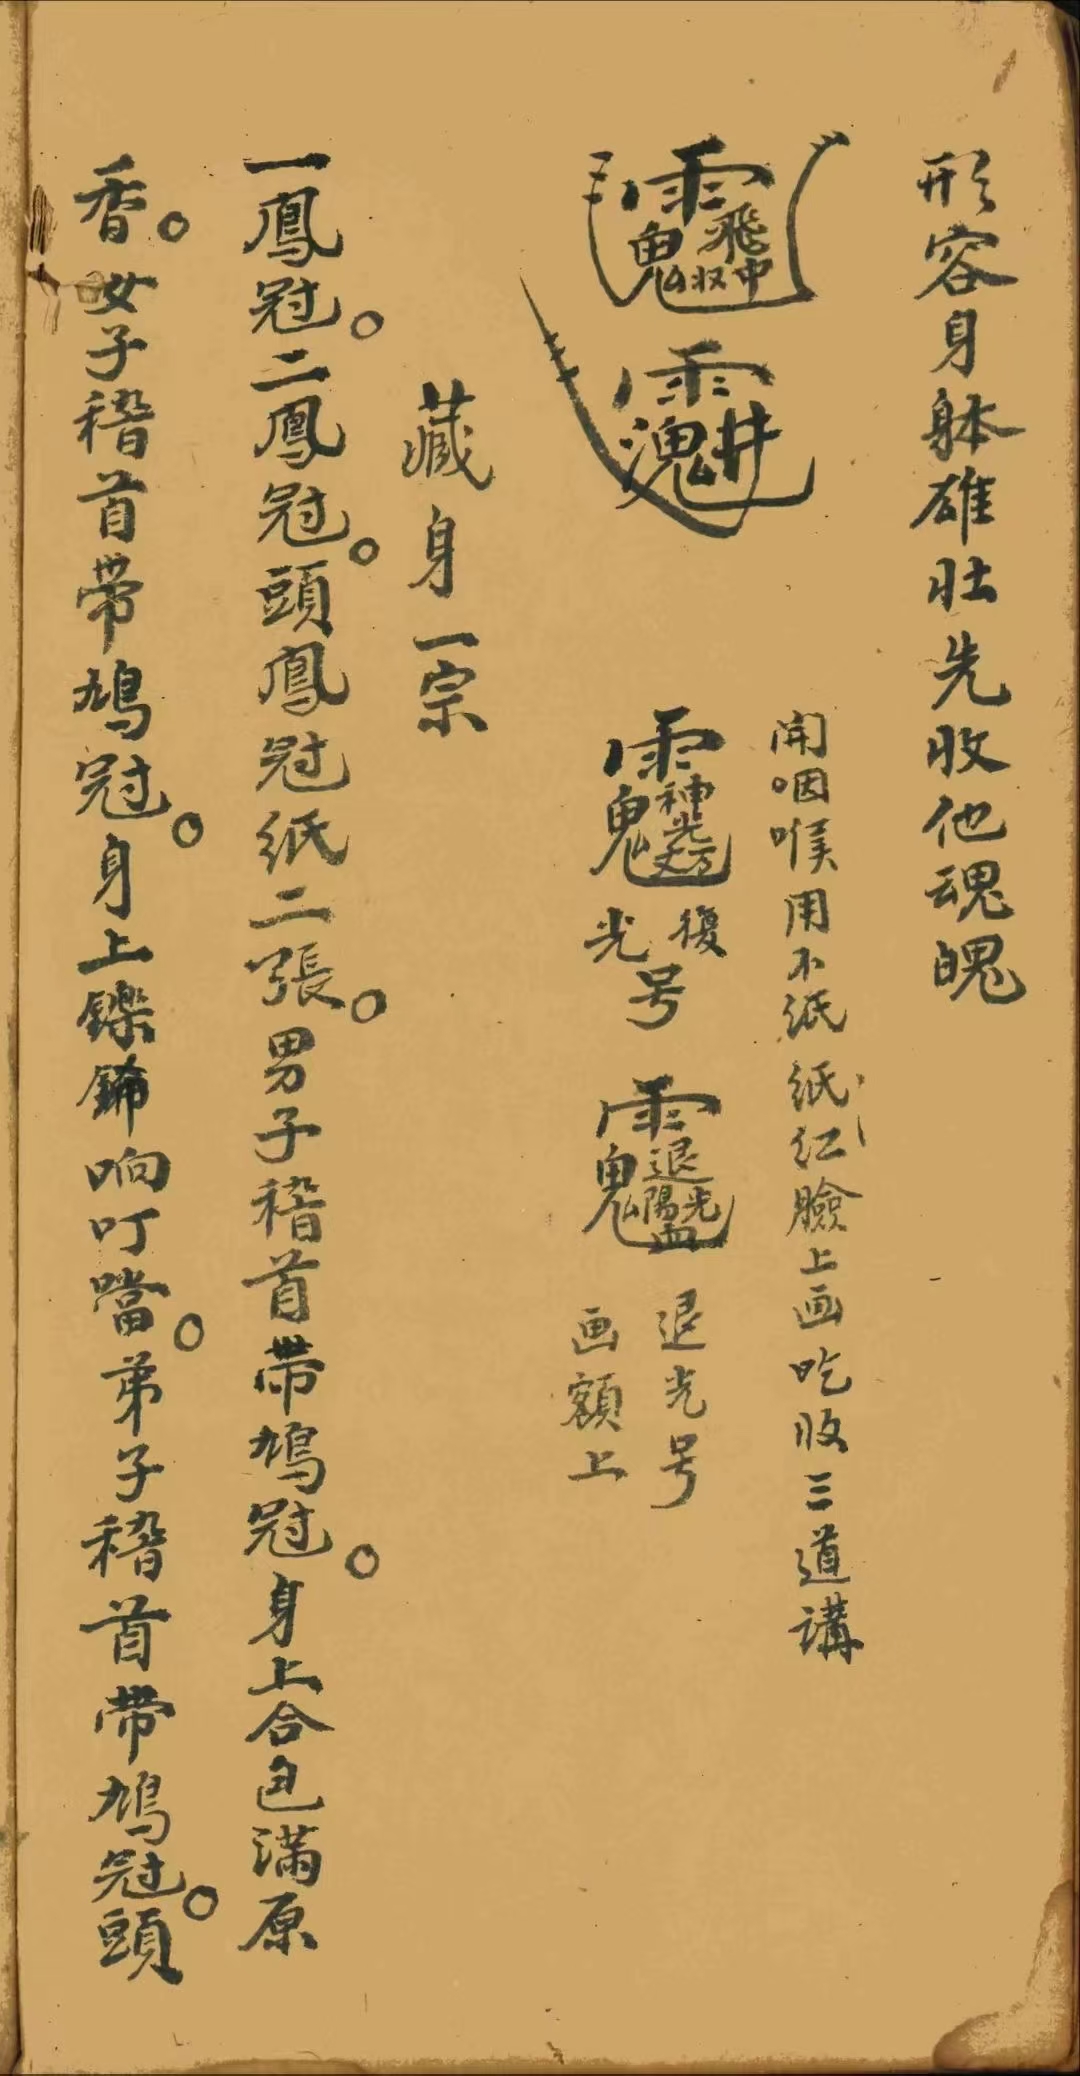 形容身躰雄壮先收他魂魄
開咽喉用不紙紙红臉上画吃收三道講
復光号
退光号
画額上
藏身一宗
一鳳冠。二鳳冠。頭鳳冠紙二張。男子稽首带鳩冠。身上合包满原
香。女子稽首带鳩冠。身上鑠鈽响叮噹。弟子稽首带鳩冠。頭